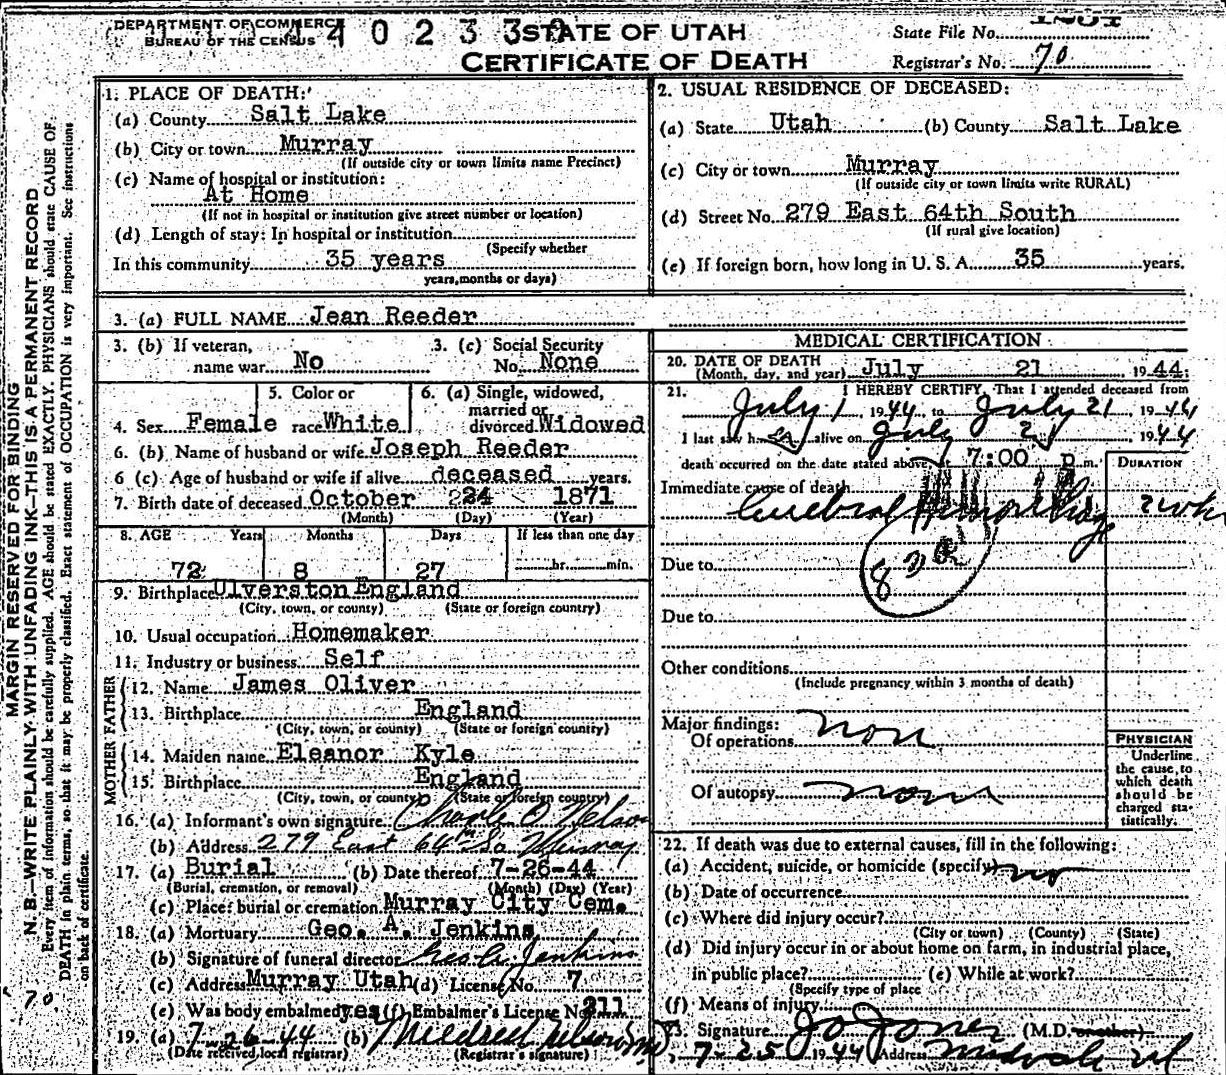 DEPARTMENT OF COMMERCE
BUREAU OF THE CENSUS
STATE OF UTAH
CERTIFICATE OF DEATH
State File No.
Registrar's No. 70
MARGIN RESERVED FOR BINDING
N. B.—WRITE PLAINLY WITH UNFADING INK—THIS IS A PERMANENT RECORD
Every item of information should be carefully supplied. AGE should be stated EXACTLY. PHYSICIANS should state CAUSE OF
DEATH in plain terms, so that it may be properly classified. Exact statement of OCCUPATION is very important. See instructions
on back of certificate.
70
1. PLACE OF DEATH:
(a) County Salt Lake
(b) City or town Murray
(If outside city or town limits name Precinct)
(c) Name of hospital or institution:
At Home
(If not in hospital or institution give street number or location)
(d) Length of stay: In hospital or institution
(Specify whether
In this community 35 years
years, months or days)
2. USUAL RESIDENCE OF DECEASED:
(a) State Utah (b) County Salt Lake
(c) City or town Murray
(If outside city or town limits write RURAL)
(d) Street No. 279 East 64th South
(If rural give location)
(e) If foreign born, how long in U. S. A. 35 years.
3. (a) FULL NAME Jean Reeder
3. (b) If veteran, 3. (c) Social Security
name war No No. None
4. Sex Female
5. Color or
race White
6. (a) Single, widowed,
married or
divorced Widowed
6. (b) Name of husband or wife Joseph Reeder
6 (c) Age of husband or wife if alive deceased years.
7. Birth date of deceased October 24 1871
(Month) (Day) (Year)
8. AGE Years Months Days If less than one day
72 8 27 hr. min.
9. Birthplace Ulverston England
(City, town, or county) (State or foreign country)
10. Usual occupation Homemaker
11. Industry or business Self
FATHER
12. Name James Oliver
13. Birthplace England
(City, town, or county) (State or foreign country)
MOTHER
14. Maiden name Eleanor Kyle
15. Birthplace England
(City, town, or county) (State or foreign country)
16. (a) Informant's own signature Charles O Nelson
(b) Address 279 East 64th So Murray
17. (a) Burial (b) Date thereof 7-26-44
(Burial, cremation, or removal) (Month) (Day) (Year)
(c) Place: burial or cremation Murray City Cem.
18. (a) Mortuary Geo. A. Jenkins
(b) Signature of funeral director Geo. A. Jenkins
(c) Address Murray Utah (d) License No. 7
(e) Was body embalmed yes (f) Embalmer's License No. 211
19. (a) 7-26-44 (b) Mildred
(Date received local registrar) (Registrar's signature)
MEDICAL CERTIFICATION
20. DATE OF DEATH
(Month, day, and year) July 21 1944
21. I HEREBY CERTIFY, That I attended deceased from
July 1 1944 to July 21, 1944
I last saw her alive on July 21, 1944
death occurred on the date stated above, at 7:00 p m.
DURATION
Immediate cause of death
Cerebral Hemorrhage 2 wks
Due to
Due to
Other conditions
(Include pregnancy within 3 months of death)
Major findings:
Of operations non
Of autopsy none
PHYSICIAN
Underline
the cause to
which death
should be
charged sta-
tistically.
22. If death was due to external causes, fill in the following:
(a) Accident, suicide, or homicide (specify) no
(b) Date of occurrence
(c) Where did injury occur?
(City or town) (County) (State)
(d) Did injury occur in or about home on farm, in industrial place,
in public place? (e) While at work?
(Specify type of place
(f) Means of injury
23. Signature Jo Jones (M.D. another)
7-25 1944 Address Midvale Ut